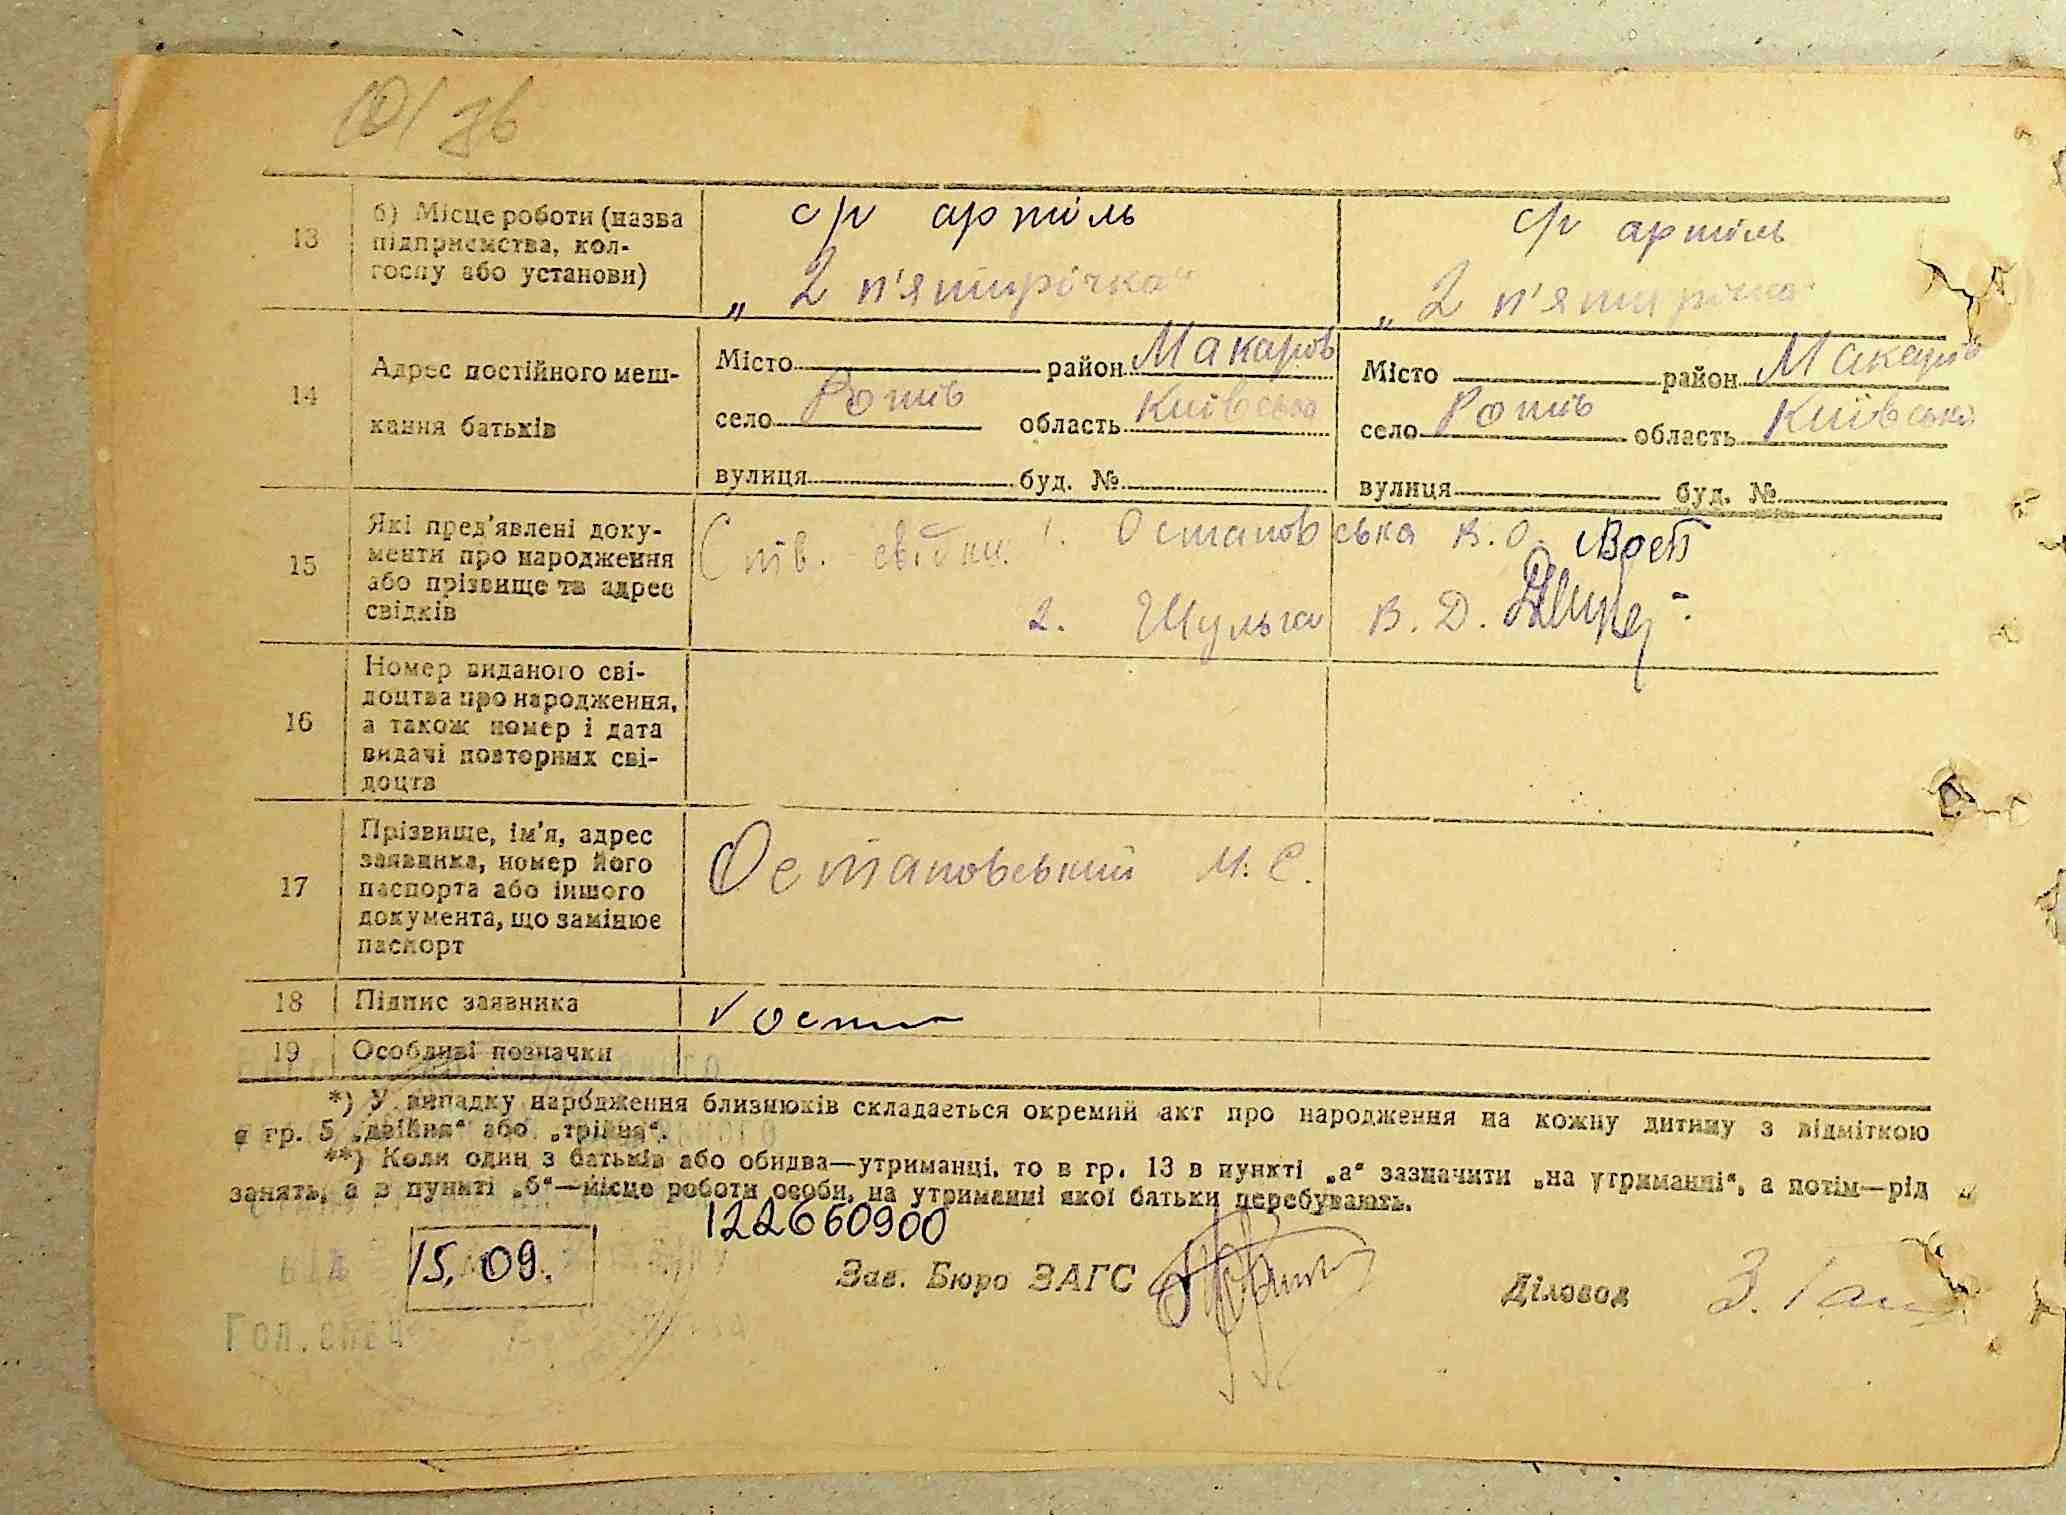 13
б) Місце роботи (назва
підприємства, кол-
госпу або установи)
с/г артіль
„ 2 п'ятирічка“
с/г артіль
„ 2 п'ятирічка“
14
Адрес постійного меш-
кання батьків
Місто район Макарів
село Ротів область Київська
вулиця буд. №
Місто район Макарів
село Ротів область Київська
вулиця буд. №
15
Які пред'явлені доку-
менти про народження
або прізвище та адрес
свідків
свідки. 1. Остаповська В. О.
2. Шульга В. Д.
16
Номер виданого сві-
доцтва про народження,
а також номер і дата
видачі повторних сві-
доцтв
17
Прізвище, ім'я, адрес
заявника, номер його
паспорта або іншого
документа, що замінює
паспорт
Остаповський М. С.
18
Підпис заявника
19
Особливі позначки
*) У випадку народження близнюків складається окремий акт про народження на кожну дитину з відміткою
в гр. 5 „двійня“ або „трійня“.
**) Коли один з батьків або обидва—утриманці, то в гр. 13 в пункті „а“ зазначити „на утриманні“, а потім—рід
занять, а в пункті „б“—місце роботи особи, на утриманні якої батьки перебувають.
122660900
15. 09.
Зав. Бюро ЗАГС
Діловод
Гол. спец